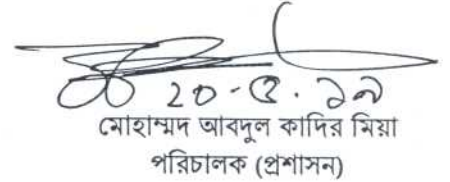 ২০-৫.১৯
মোহাম্মদ আবদুল কাদির মিয়া
পরিচালক (প্রশাসন)